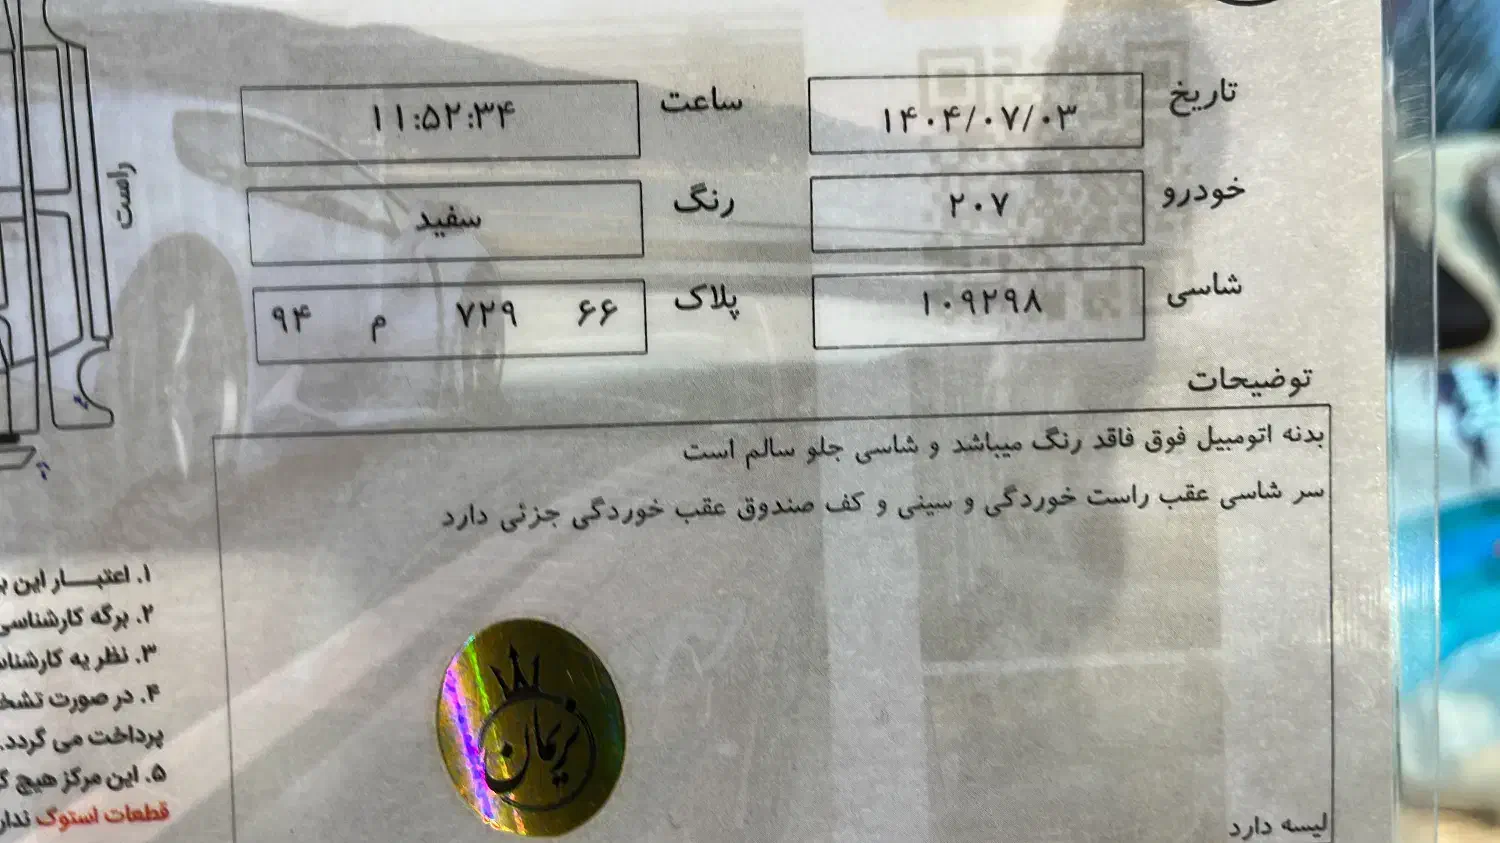 تاریخ ۱۴۰۴/۰۷/۰۳ ساعت ۱۱:۵۲:۳۴
خودرو ۲۰۷ رنگ سفید
شاسی ۱۰۹۲۹۸ پلاک ۶۶ ۷۲۹ م ۹۴
توضیحات
بدنه اتومبیل فوق فاقد رنگ میباشد و شاسی جلو سالم است
سر شاسی عقب راست خوردگی و سینی و کف صندوق عقب خوردگی جزئی دارد
نریمان
لیسه دارد
راست
۱. اعتبـــار این
۲. برگه کارشناسی
۳. نظریه
۴. در صورت
پرداخت می گردد.
۵. این مرکز هیچ
قطعات استوک